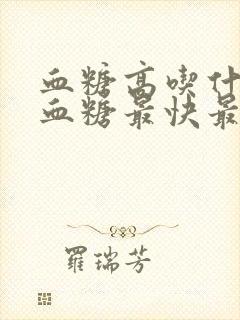 血糖高喫什
血糖最快最
羅瑞芳